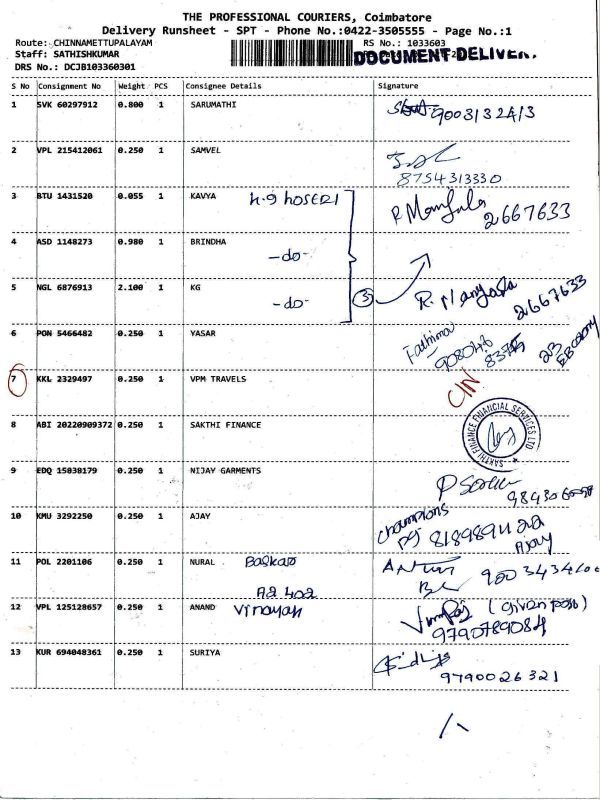 THE PROFESSIONAL COURIERS, Coimbatore
Delivery Runsheet - SPT - Phone No.:0422-3505555 - Page No.:1
Route: CHINNAMETTUPALAYAM RS No.: 1033603
Staff: SATHISHKUMAR DOCUMENT DELIVER
DRS No.: DCJB103360301
S No Consignment No Weight PCS Consignee Details Signature
1 SVK 60297912 0.800 1 SARUMATHI
2 VPL 215412061 0.250 1 SAMVEL
8754313330
3 BTU 1431520 0.055 1 KAVYA H.G HOSERI R Mangala 2667633
4 ASD 1148273 0.980 1 BRINDHA
-do-
5 NGL 6876913 2.100 1 KG 3 R. Mangala 2667633
-do-
6 PON 5466482 0.250 1 YASAR Fathima
7 KKL 2329497 0.250 1 VPM TRAVELS C/N
8 ABI 20220909372 0.250 1 SAKTHI FINANCE SAKTHI FINANCE FINANCIAL SERVICES LTD
9 EDQ 15038179 0.250 1 NIJAY GARMENTS
10 KMU 3292250 0.250 1 AJAY Champions
Ajay
11 POL 2201106 0.250 1 NURAL
A2 402
12 VPL 125128657 0.250 1 ANAND Vinayan
9790789084
13 KUR 694048361 0.250 1 SURIYA
9790026321